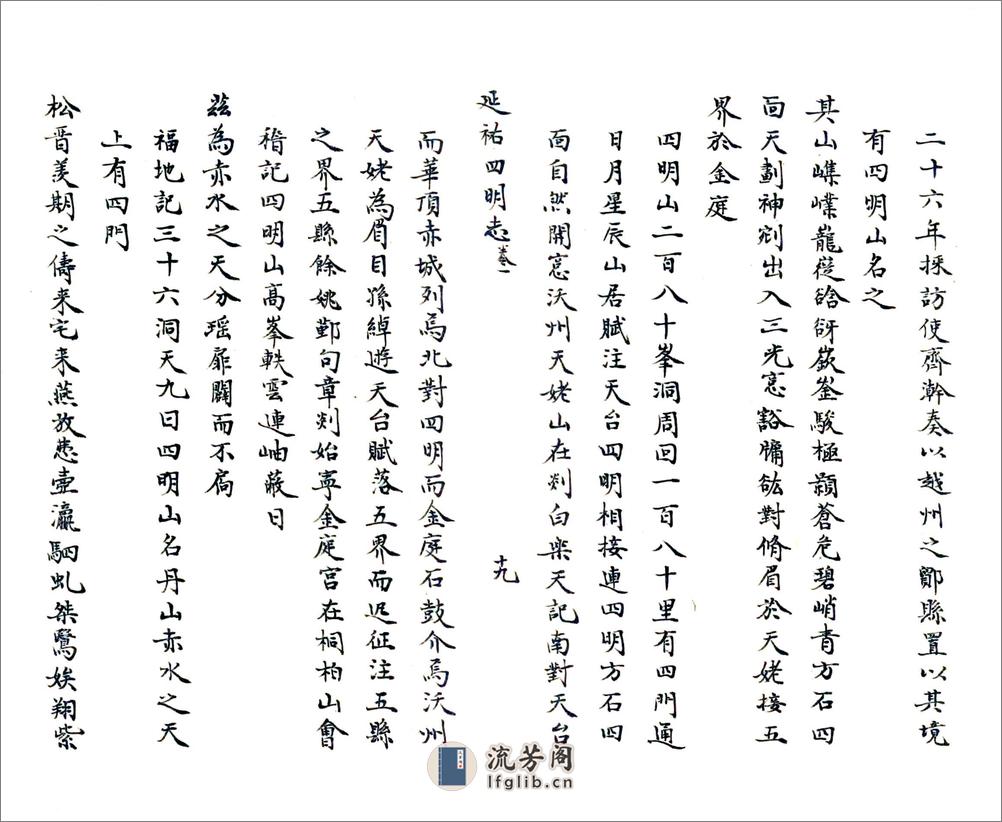 二十六年採訪使齊澣奏以越州之鄮縣置以其境
有四明山名之
其山嶫嶪巃嵸谽谺嶔崟駿極顥蒼危碧峭青方石四
面天劃神剜出入三光窻豁牖谹對脩眉於天姥接五
界於金庭
四明山二百八十峯洞周回一百八十里有四門通
日月星辰山居賦注天台四明相接連四明方石四
面自然開窻沃州天姥山在剡白樂天記南對天台
延祐四明志 卷一
十九
而華頂赤城列焉北對四明而金庭石鼓介焉沃州
天姥為眉目孫綽遊天台賦落五界而迅征注五縣
之界五縣餘姚鄞句章剡始寧金庭宮在桐柏山會
稽記四明山高峯軼雲連岫蔽日
茲為赤水之天分瑶扉闢而不扃
福地記三十六洞天九曰四明山名丹山赤水之天
上有四門
松晋羡期之儔来宅来燕放懸壷瀛駟虬桀鷖娭翔紫
流芳阁
lfglib.cn